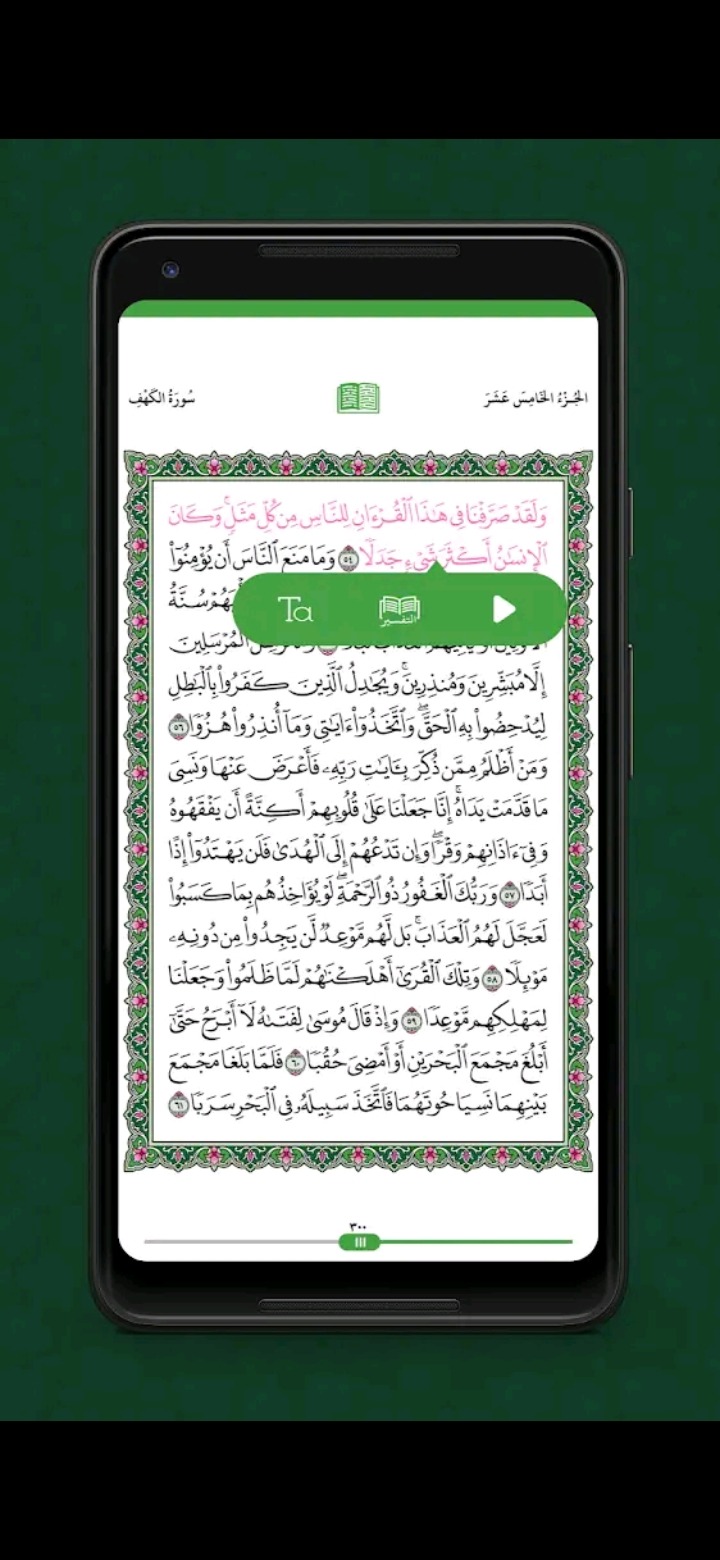 الجُزْءُ الخَامِسَ عَشَرَ
سُورَةُ الكَهْفِ
وَلَقَدْ صَرَّفْنَا فِي هَٰذَا ٱلْقُرْءَانِ لِلنَّاسِ مِن كُلِّ مَثَلٍۚ وَكَانَ
ٱلْإِنسَٰنُ أَكْثَرَ شَىْءٍ جَدَلًا ٥٤ وَمَا مَنَعَ ٱلنَّاسَ أَن يُؤْمِنُوٓا۟
سُنَّةُ
Ta
التفسير
ٱلْمُرْسَلِينَ
إِلَّا مُبَشِّرِينَ وَمُنذِرِينَۚ وَيُجَٰدِلُ ٱلَّذِينَ كَفَرُوا۟ بِٱلْبَٰطِلِ
لِيُدْحِضُوا۟ بِهِ ٱلْحَقَّۖ وَٱتَّخَذُوٓا۟ ءَايَٰتِى وَمَآ أُنذِرُوا۟ هُزُوًا ٥٦
وَمَنْ أَظْلَمُ مِمَّن ذُكِّرَ بِـَٔايَٰتِ رَبِّهِۦ فَأَعْرَضَ عَنْهَا وَنَسِىَ
مَا قَدَّمَتْ يَدَاهُۚ إِنَّا جَعَلْنَا عَلَىٰ قُلُوبِهِمْ أَكِنَّةً أَن يَفْقَهُوهُ
وَفِىٓ ءَاذَانِهِمْ وَقْرًاۖ وَإِن تَدْعُهُمْ إِلَى ٱلْهُدَىٰ فَلَن يَهْتَدُوٓا۟ إِذًا
أَبَدًا ٥٧ وَرَبُّكَ ٱلْغَفُورُ ذُو ٱلرَّحْمَةِۖ لَوْ يُؤَاخِذُهُم بِمَا كَسَبُوا۟
لَعَجَّلَ لَهُمُ ٱلْعَذَابَۚ بَل لَّهُم مَّوْعِدٌ لَّن يَجِدُوا۟ مِن دُونِهِۦ
مَوْئِلًا ٥٨ وَتِلْكَ ٱلْقُرَىٰٓ أَهْلَكْنَٰهُمْ لَمَّا ظَلَمُوا۟ وَجَعَلْنَا
لِمَهْلِكِهِم مَّوْعِدًا ٥٩ وَإِذْ قَالَ مُوسَىٰ لِفَتَىٰهُ لَآ أَبْرَحُ حَتَّىٰٓ
أَبْلُغَ مَجْمَعَ ٱلْبَحْرَيْنِ أَوْ أَمْضِىَ حُقُبًا ٦٠ فَلَمَّا بَلَغَا مَجْمَعَ
بَيْنِهِمَا نَسِيَا حُوتَهُمَا فَٱتَّخَذَ سَبِيلَهُۥ فِى ٱلْبَحْرِ سَرَبًا ٦١
٣٠٠